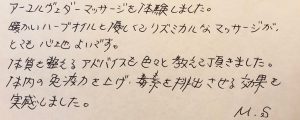 アーユルヴェダーマッサージを体験しました。
暖かいハーブオイルと優しくてリズミカルなマッサージが、
とても心地よいです。
体質を整えるアドバイスも色々と教えて頂きました。
体内の免疫力を上げ、毒素を排出させる効果も
実感しました。
M.S